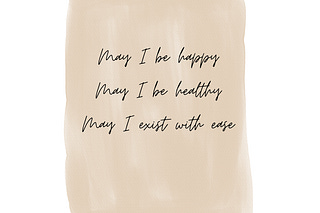 May I be happy
May I be healthy
May I exist with ease